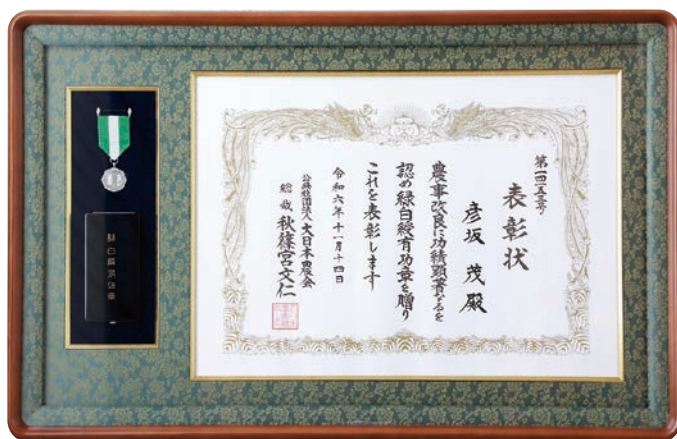 表彰状
彦坂 茂殿
農事改良に功績顕著なるを
認め緑白綬有功章を贈り
これを表彰します
令和六年十一月十四日
公益社団法人大日本農会
総裁 秋篠宮文仁